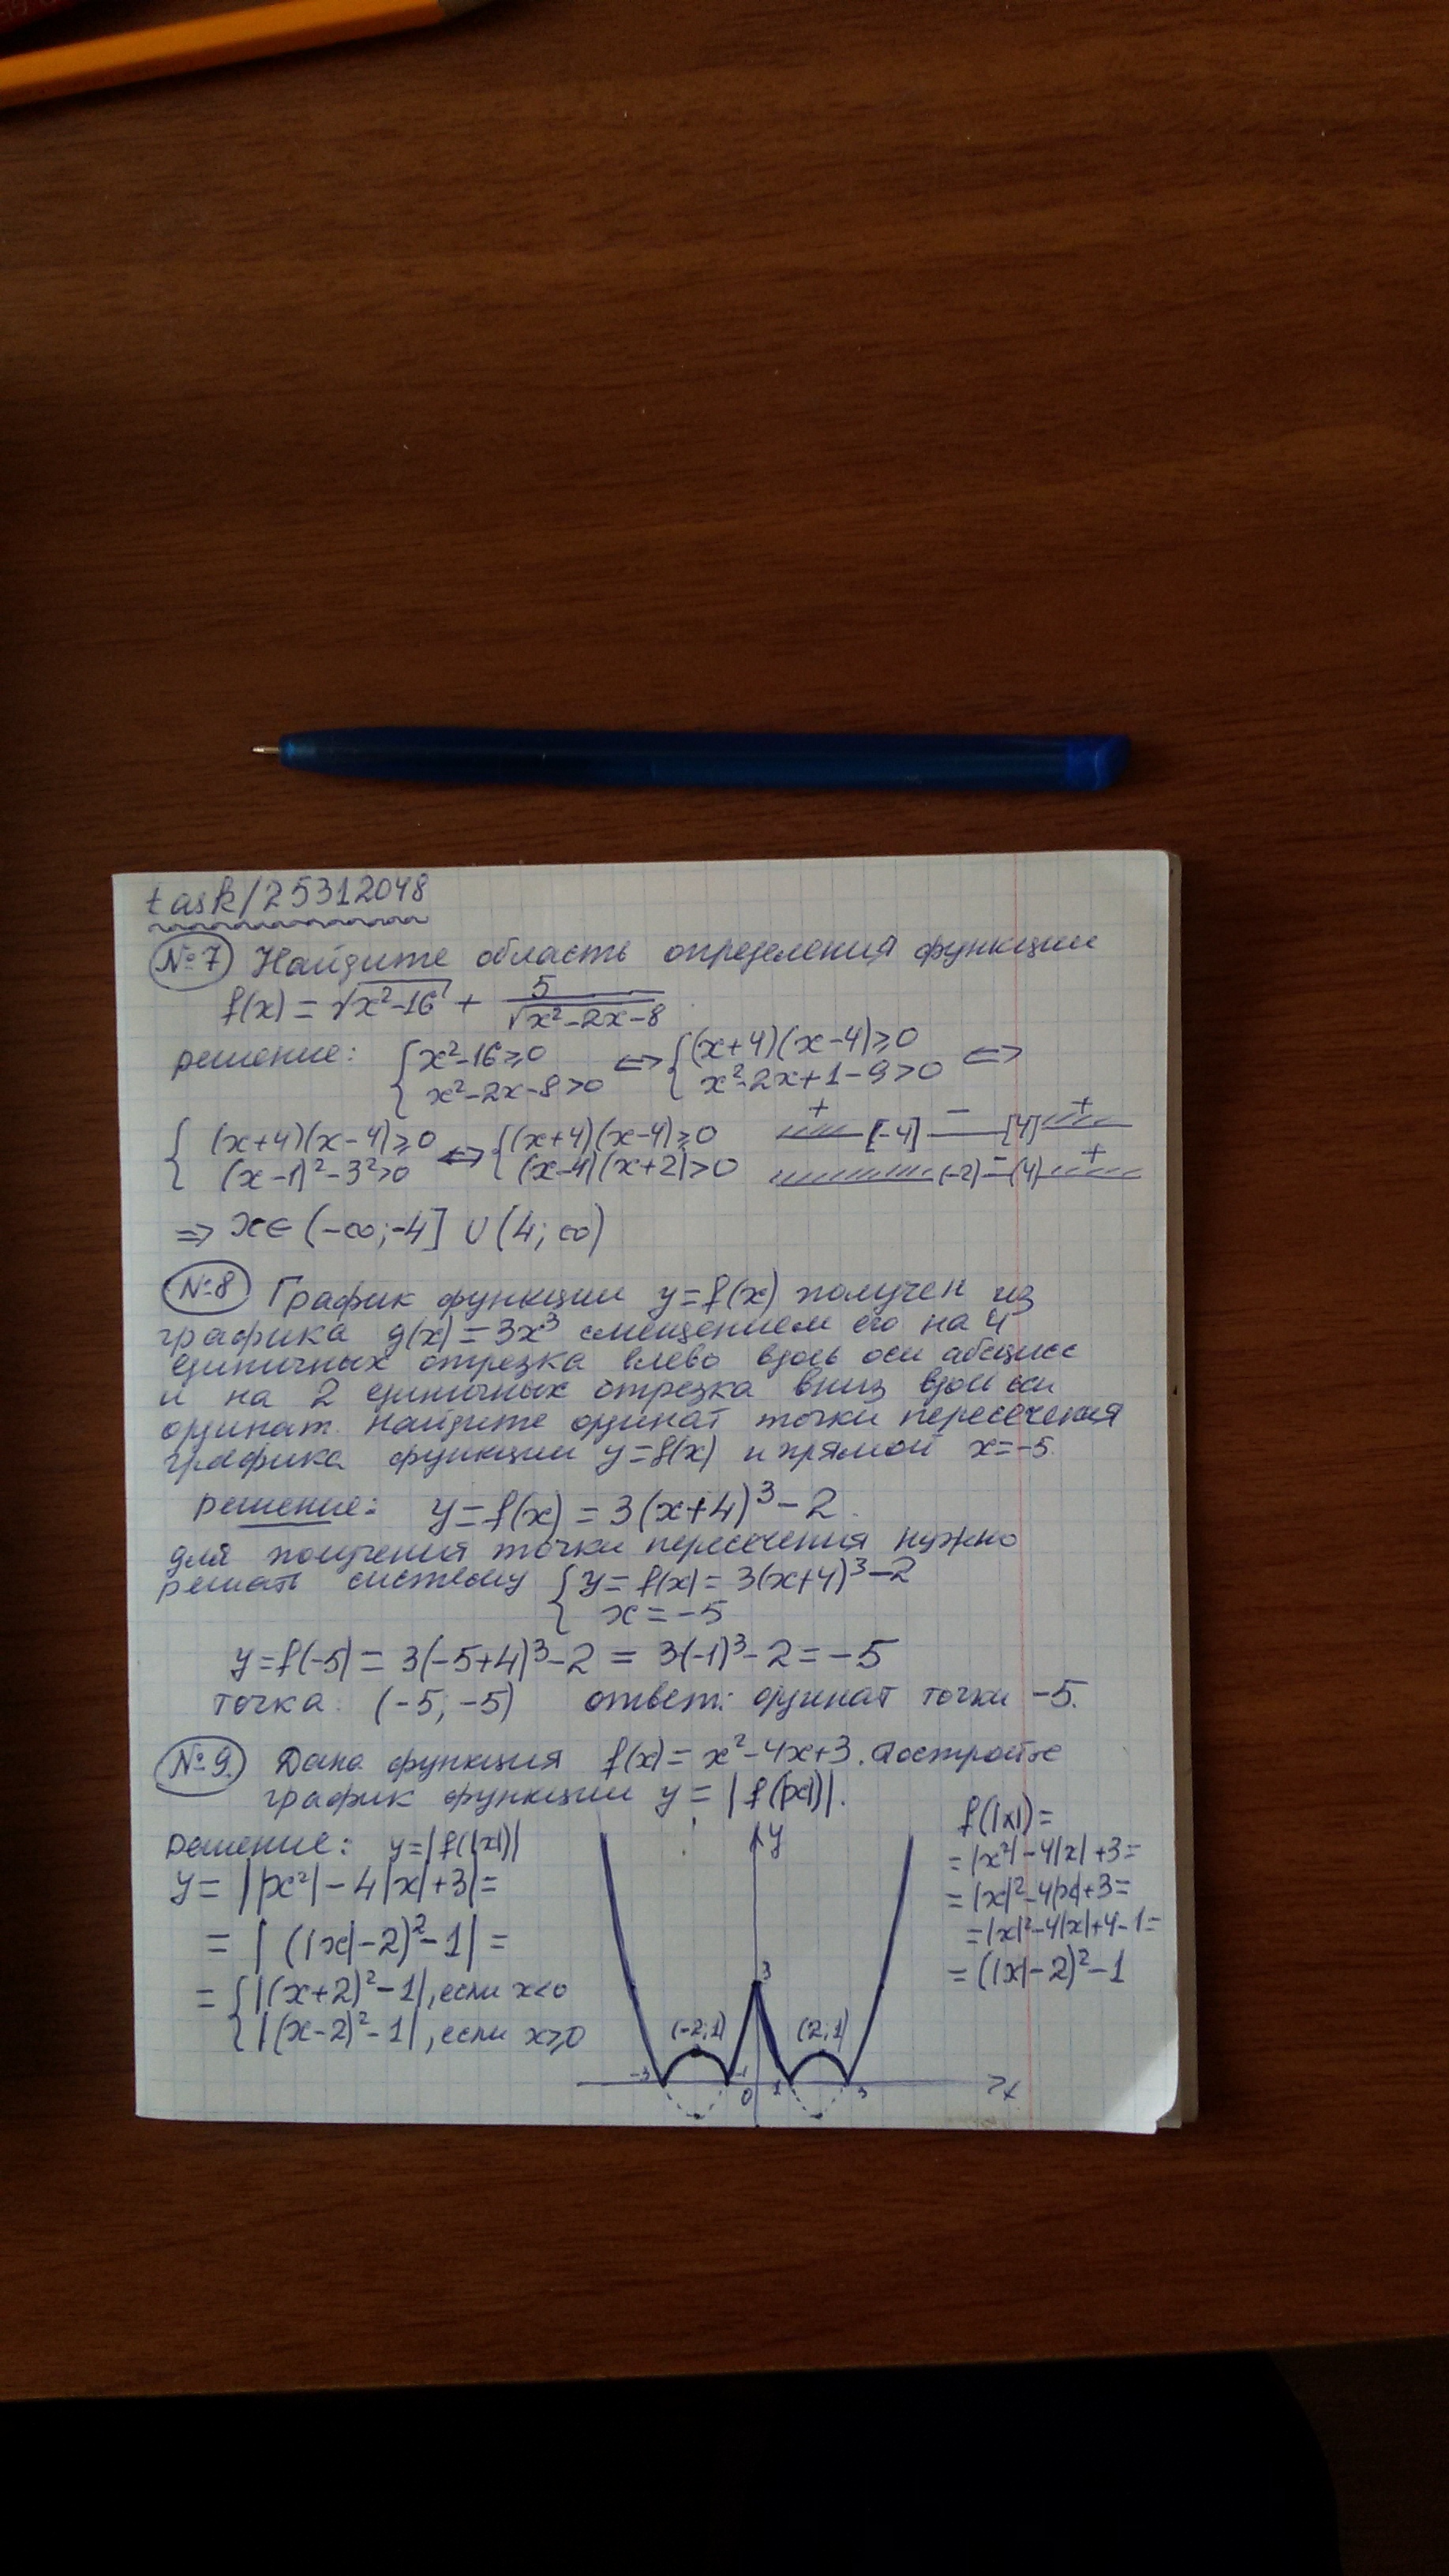 task/25312048
№7 Найдите область определения функции
f(x) = √x²-16 + 5/√x²-2x-8
решение: { x²-16≥0 x²-2x-8>0 <=> { (x+4)(x-4)≥0 x²-2x+1-9>0 <=>
{ (x+4)(x-4)≥0 (x-1)²-3²>0 <=> { (x+4)(x-4)≥0 (x-4)(x+2)>0 + [-4] − [4] +
(-2) − (4) +
=> x∈ (-∞;-4] ∪ (4; ∞)
№8 График функции y=f(x) получен из
графика g(x)=3x³ смещением его на 4
единичных отрезка влево вдоль оси абсцисс
и на 2 единичных отрезка вниз вдоль оси
ординат. Найдите ординат точки пересечения
графика функции y=f(x) и прямой x=-5.
решение: y=f(x) = 3(x+4)³-2.
для получения точки пересечения нужно
решать систему { y= f(x) = 3(x+4)³-2
x = -5
y=f(-5) = 3(-5+4)³-2 = 3(-1)³-2 = -5
точка: (-5; -5) ответ: ординат точки -5.
№9. Дана функция f(x) = x²-4x+3. Постройте
график функции y = |f(|x|)|.
решение: y=|f(|x|)|
y= ||x²|-4|x|+3|=
= |(|x|-2)²-1| =
= { |(x+2)²-1|, если x<0
|(x-2)²-1|, если x≥0
y
3
(-2;1) (2;1)
-3 -1 0 1 3 x
f(|x|)=
=|x²|-4|x|+3=
=|x|²-4|x|+3=
=|x|²-4|x|+4-1=
= (|x|-2)²-1